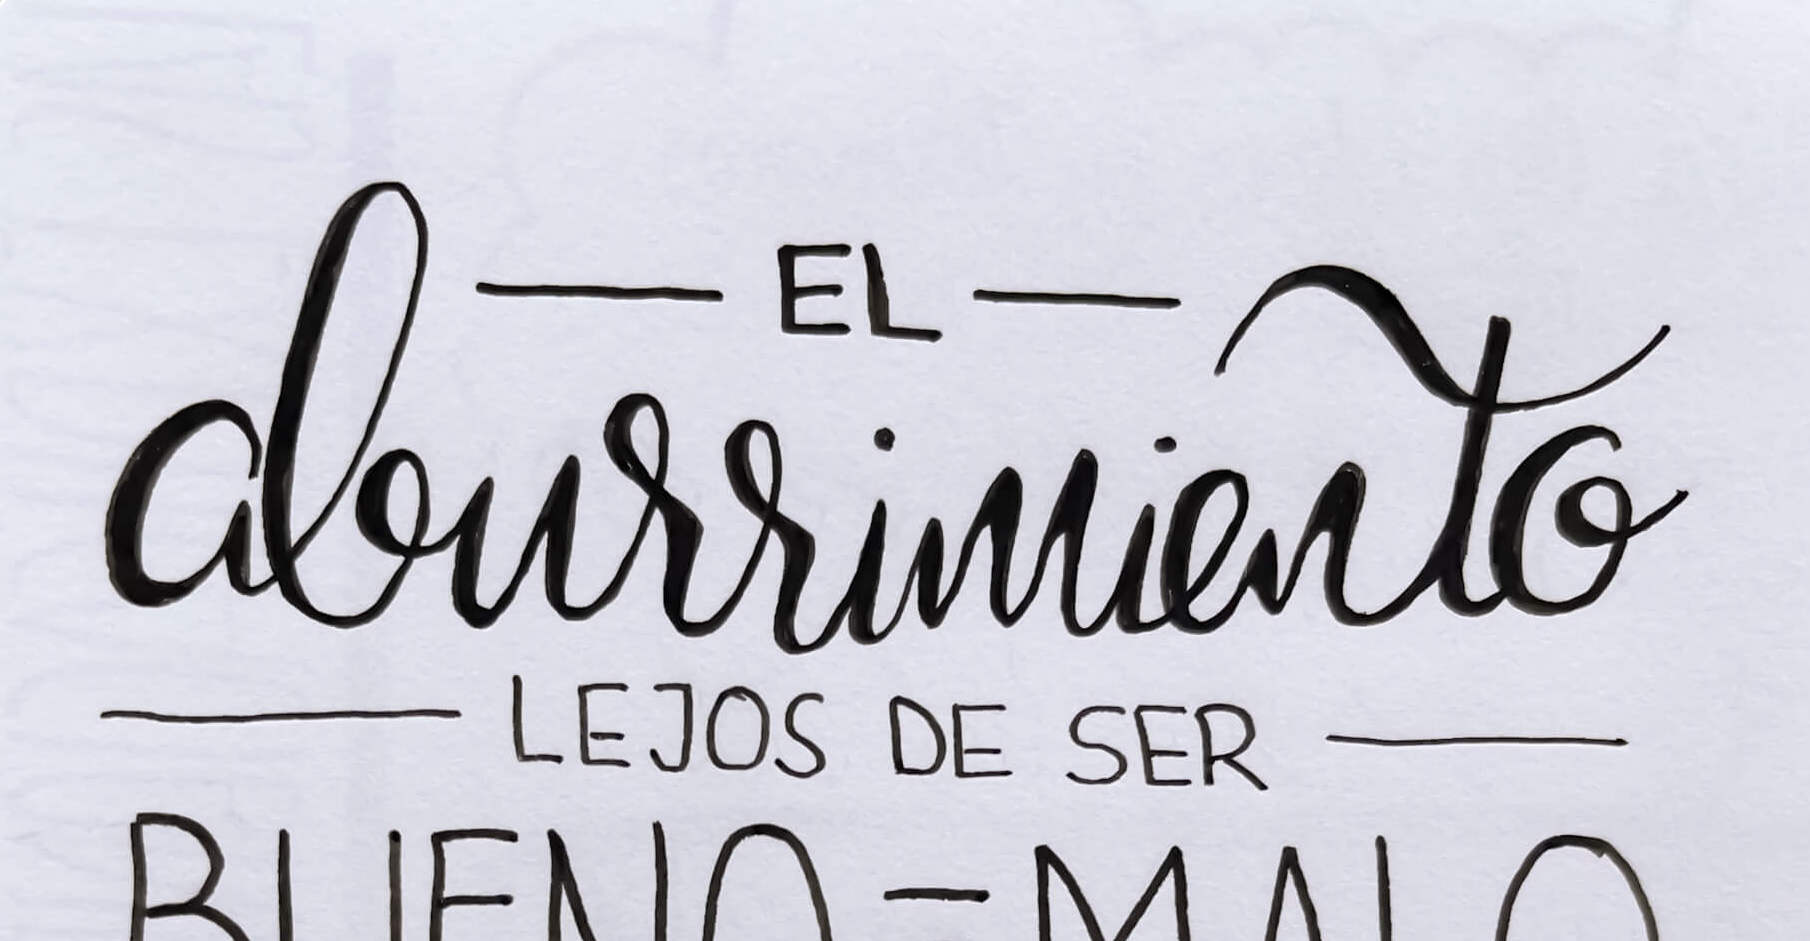 — EL —
aburrimiento
— LEJOS DE SER —
BUENO - MALO